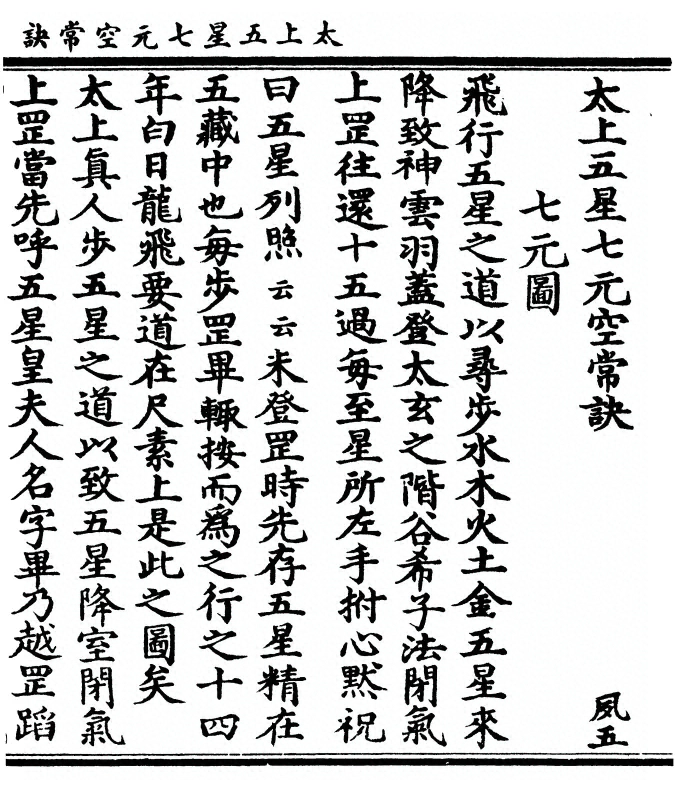 太上五星七元空常訣
太上五星七元空常訣 夙五
七元圖
飛行五星之道以尋步水木火土金五星來
降致神雲羽蓋登太玄之階谷希子法閉氣
上罡往還十五過每至星所左手拊心默祝
曰五星列照云云未登罡時先存五星精在
五藏中也每步罡畢輙按而爲之行之十四
年白日龍飛要道在尺素上是此之圖矣
太上眞人步五星之道以致五星降室閉氣
上罡當先呼五星皇夫人名字畢乃越罡蹈